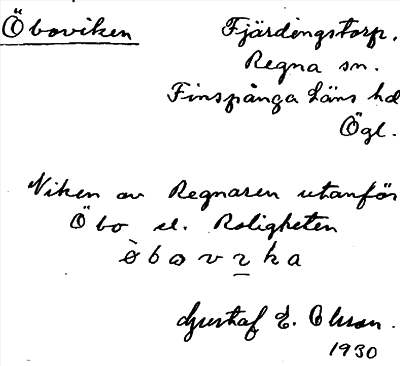 Öboviken Fjärdingstorp.
Regna sn.
Finspånga Läns hd
Ögl.
Viken av Regnaren utanför
Öbo el. Roligheten
ø̀bovıka
Gustaf E. Olsson.
1930